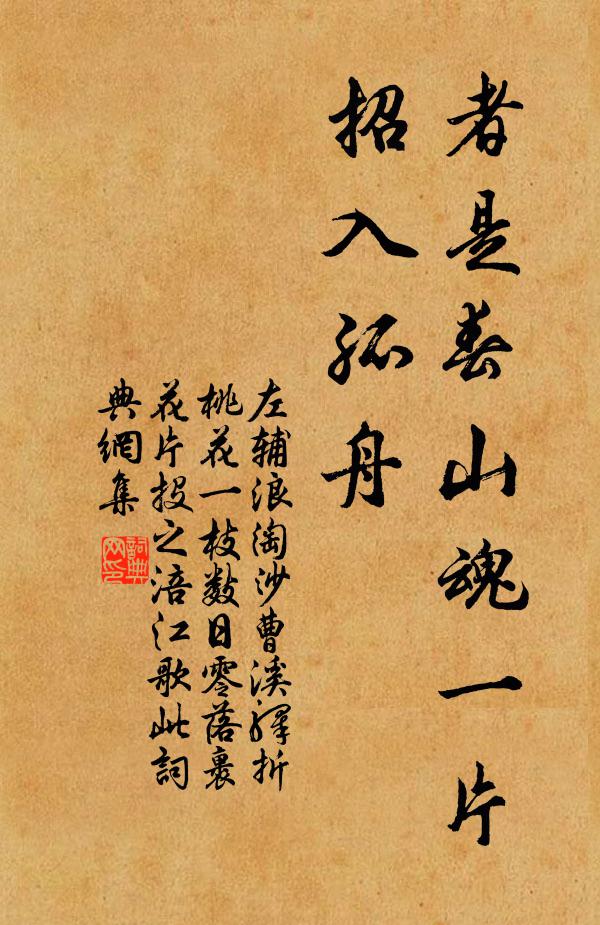 者是春山魂一片
招入孤舟
左辅浪淘沙曹溪驿折
桃花一枝数日零落裹
花片投之涪江歌此詞
典網集
詞典网印